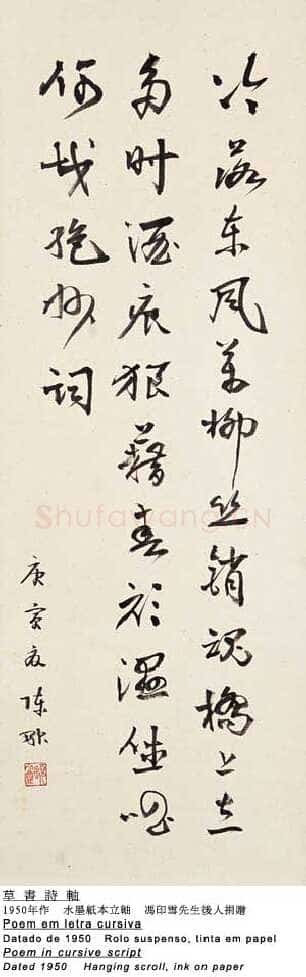 冷落東風萬柳丝銷魂橋上立
多时酒痕狼藉春衫濕低唱
何戡絕妙詞
庚寅夏 陳融
ShufaWang.CN
草書詩軸
1950年作 水墨紙本立軸 馮印雪先生後人捐贈
Poem em letra cursiva
Datado de 1950 Rolo suspenso, tinta em papel
Poem in cursive script
Dated 1950 Hanging scroll, ink on paper